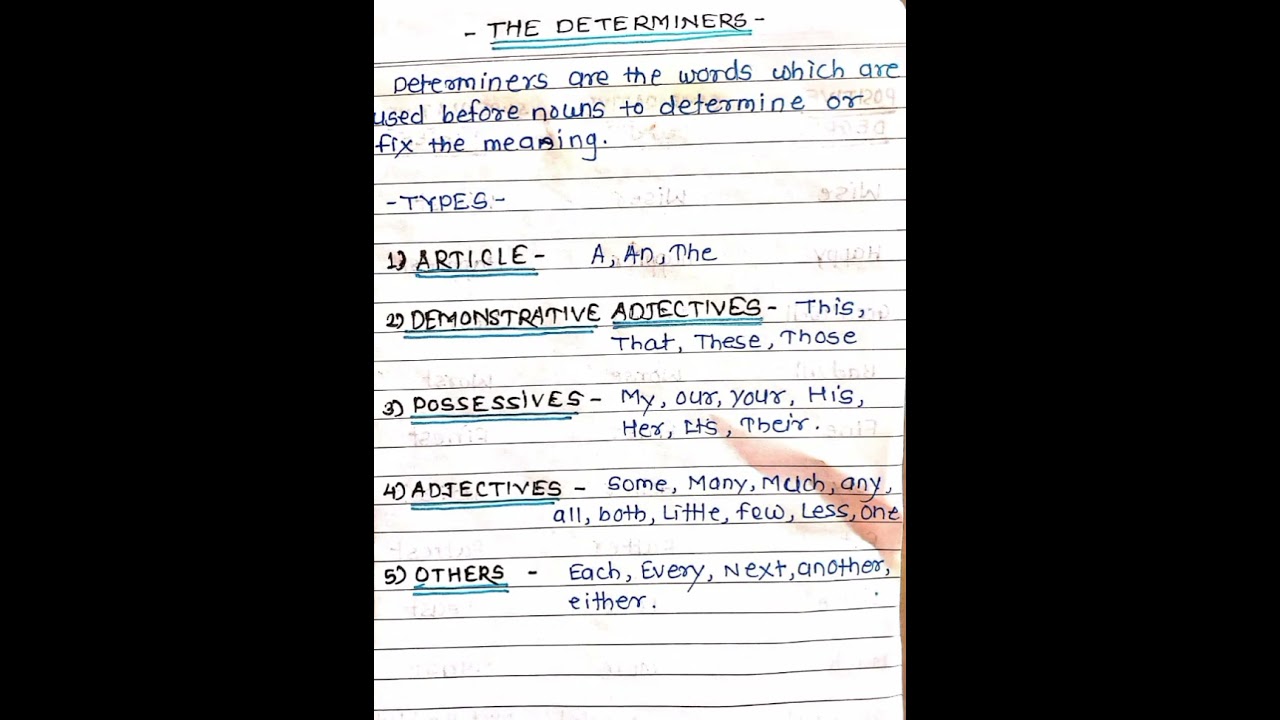 - THE DETERMINERS -
Determiners are the words which are
used before nouns to determine or
fix the meaning.
- TYPES -
1) ARTICLE - A, An, The
2) DEMONSTRATIVE ADJECTIVES - This,
That, These, Those
3) POSSESSIVES - My, our, your, His,
Her, Its, Their.
4) ADJECTIVES - Some, Many, Much, any,
all, both, Little, few, Less, one
5) OTHERS - Each, Every, Next, another,
either.